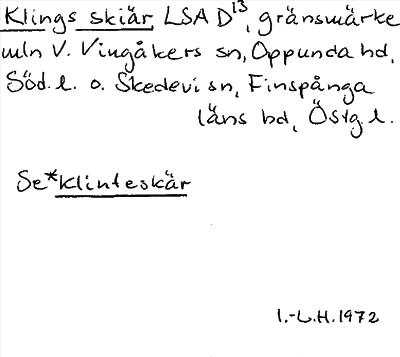 Klings skiär, LSA D¹³, gränsmärke
mln V. Vingåkers sn, Oppunda hd,
Söd. l. o. Skedevi sn, Finspånga
läns hd, Östg. l.
Se *Klinteskär
I.-L.H. 1972